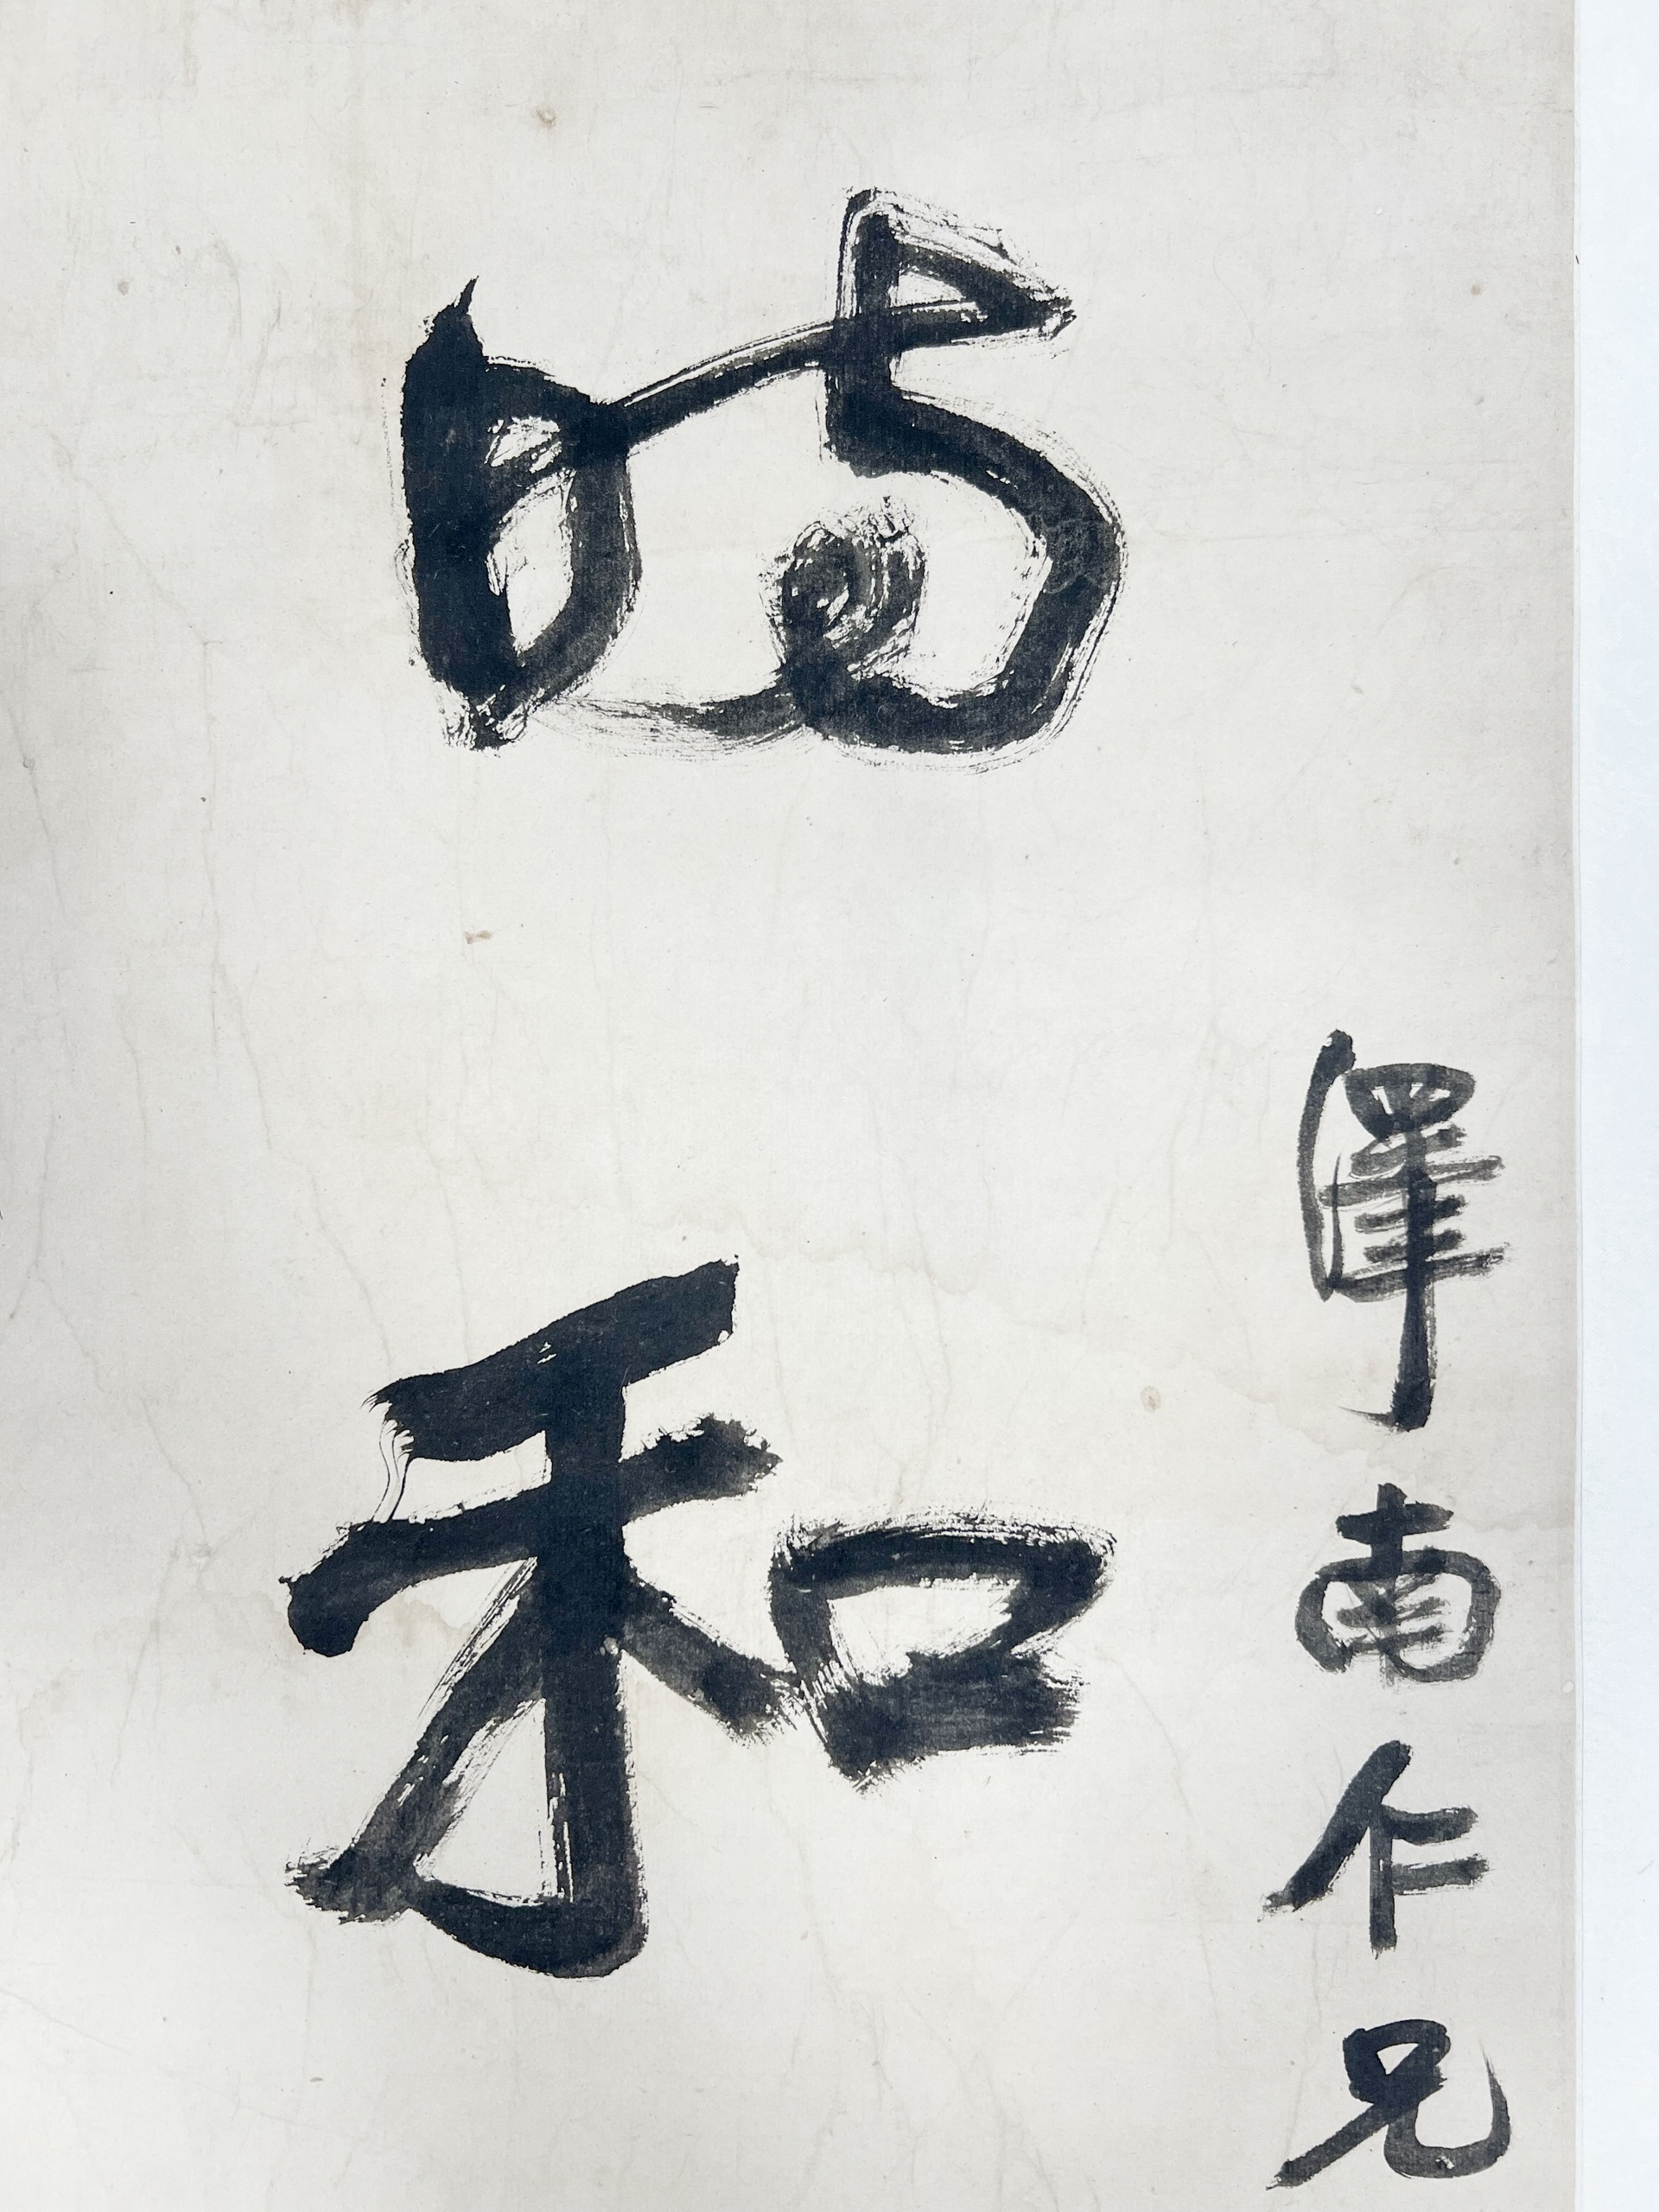 澤南仁兄
時和